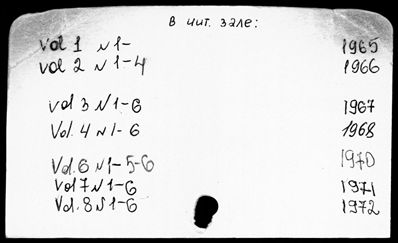 В чит. зале:
Vol 1 N 1- 1965
Vol 2 N 1-4 1966
Vol 3 N 1-6 1967
Vol. 4 N 1-6 1968
Vol. 6 N 1-5-6 1970
Vol 7 N 1-6 1971
Vol. 8 N 1-6 1972